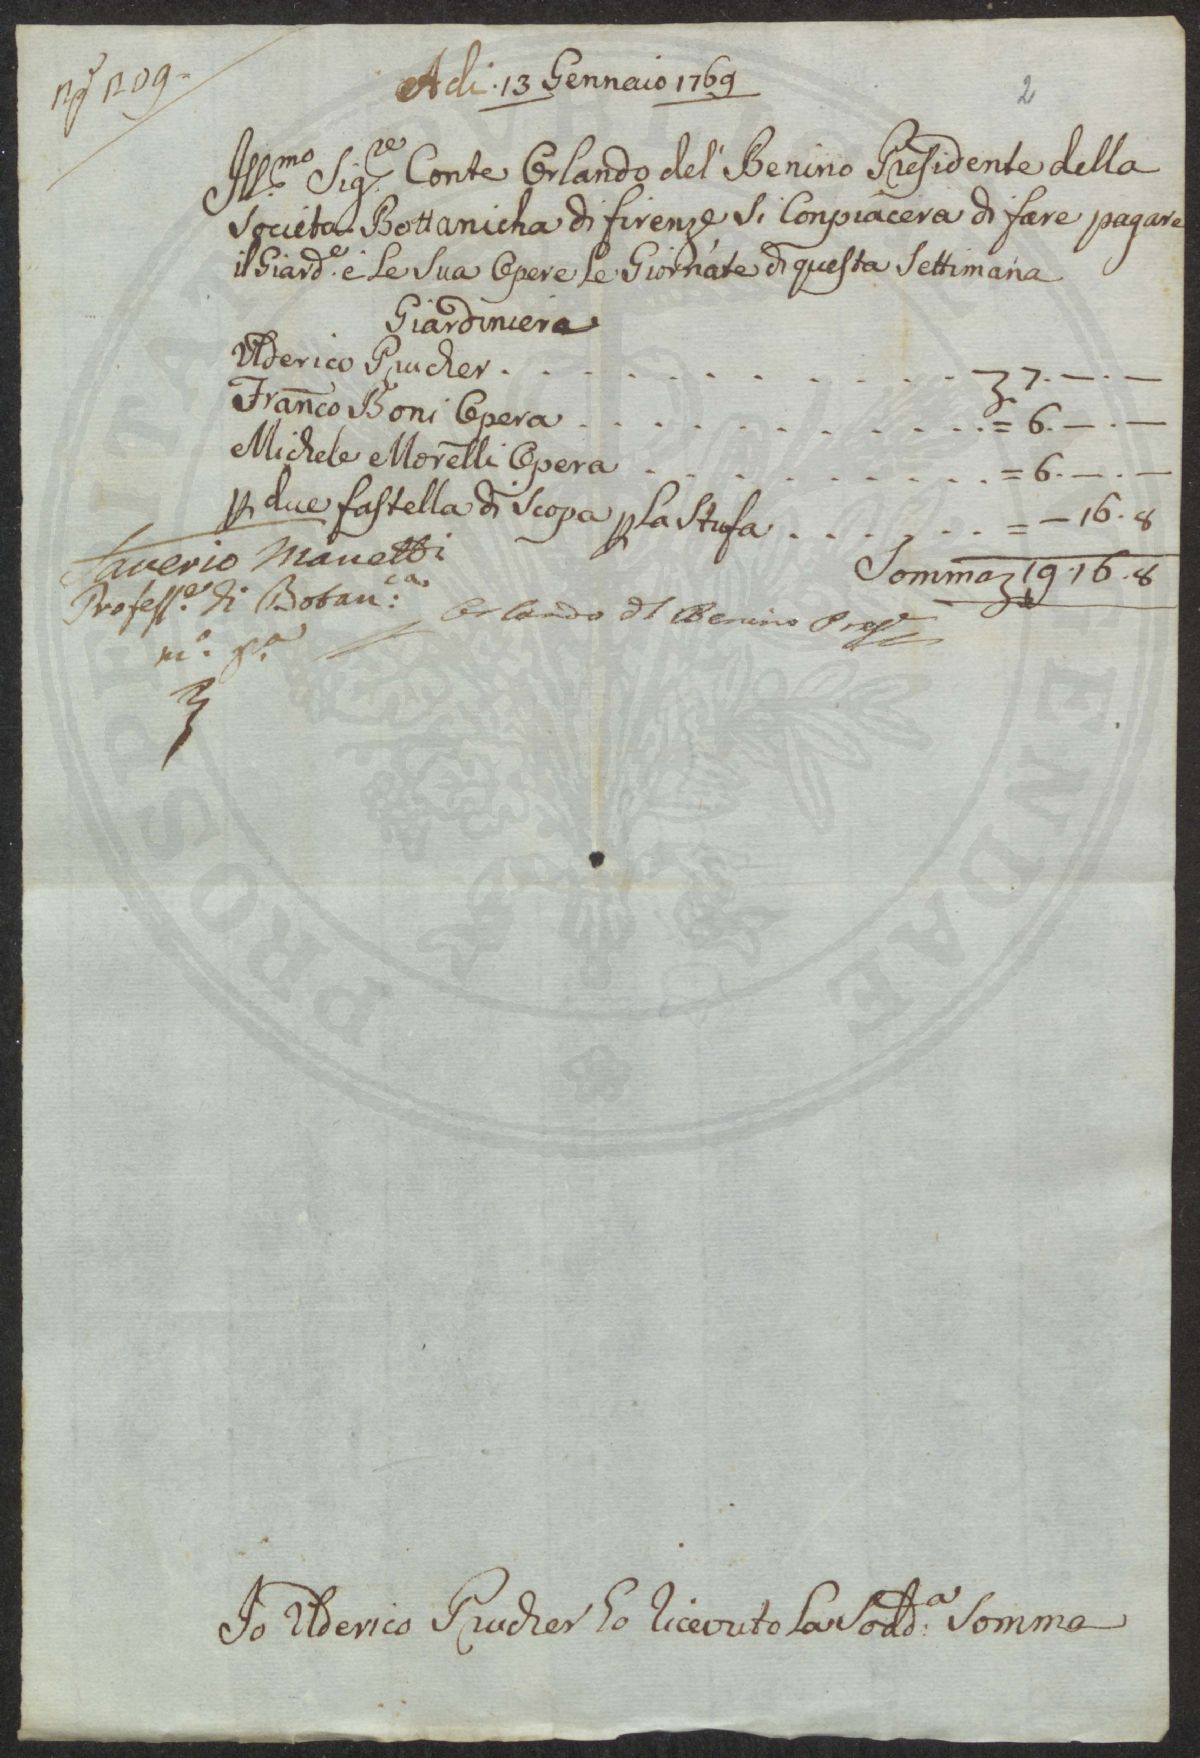 Adi. 13 Gennaio 1769
2
Ill.mo Sig.re Conte Orlando del' Benino Presidente della
Societa Bottanicha di firenze Si Conpiacera di fare pagare
il Giard.e e Le Sua Opere Le Giornate di questa Settimana
Giardiniera
Ulderico Prucher . . . . . . . . . . 7. — . —
Fran.co Boni Opera . . . . . . . . . . = 6. — . —
Michele Morelli Opera . . . . . . . . . = 6. — . —
p. due fastella di Scopa p La Stufa . . . . . . = — 16. 8
Somma 19. 16. 8
Saverio Manetti
Profess.e di Botan:ca
m.o p.a
Orlando del Benino Pres.e
Io Ulderico Prucher ho riceuto La Sodd:a Somma
PROSPERITATI PUBLICAE AUGENDAE